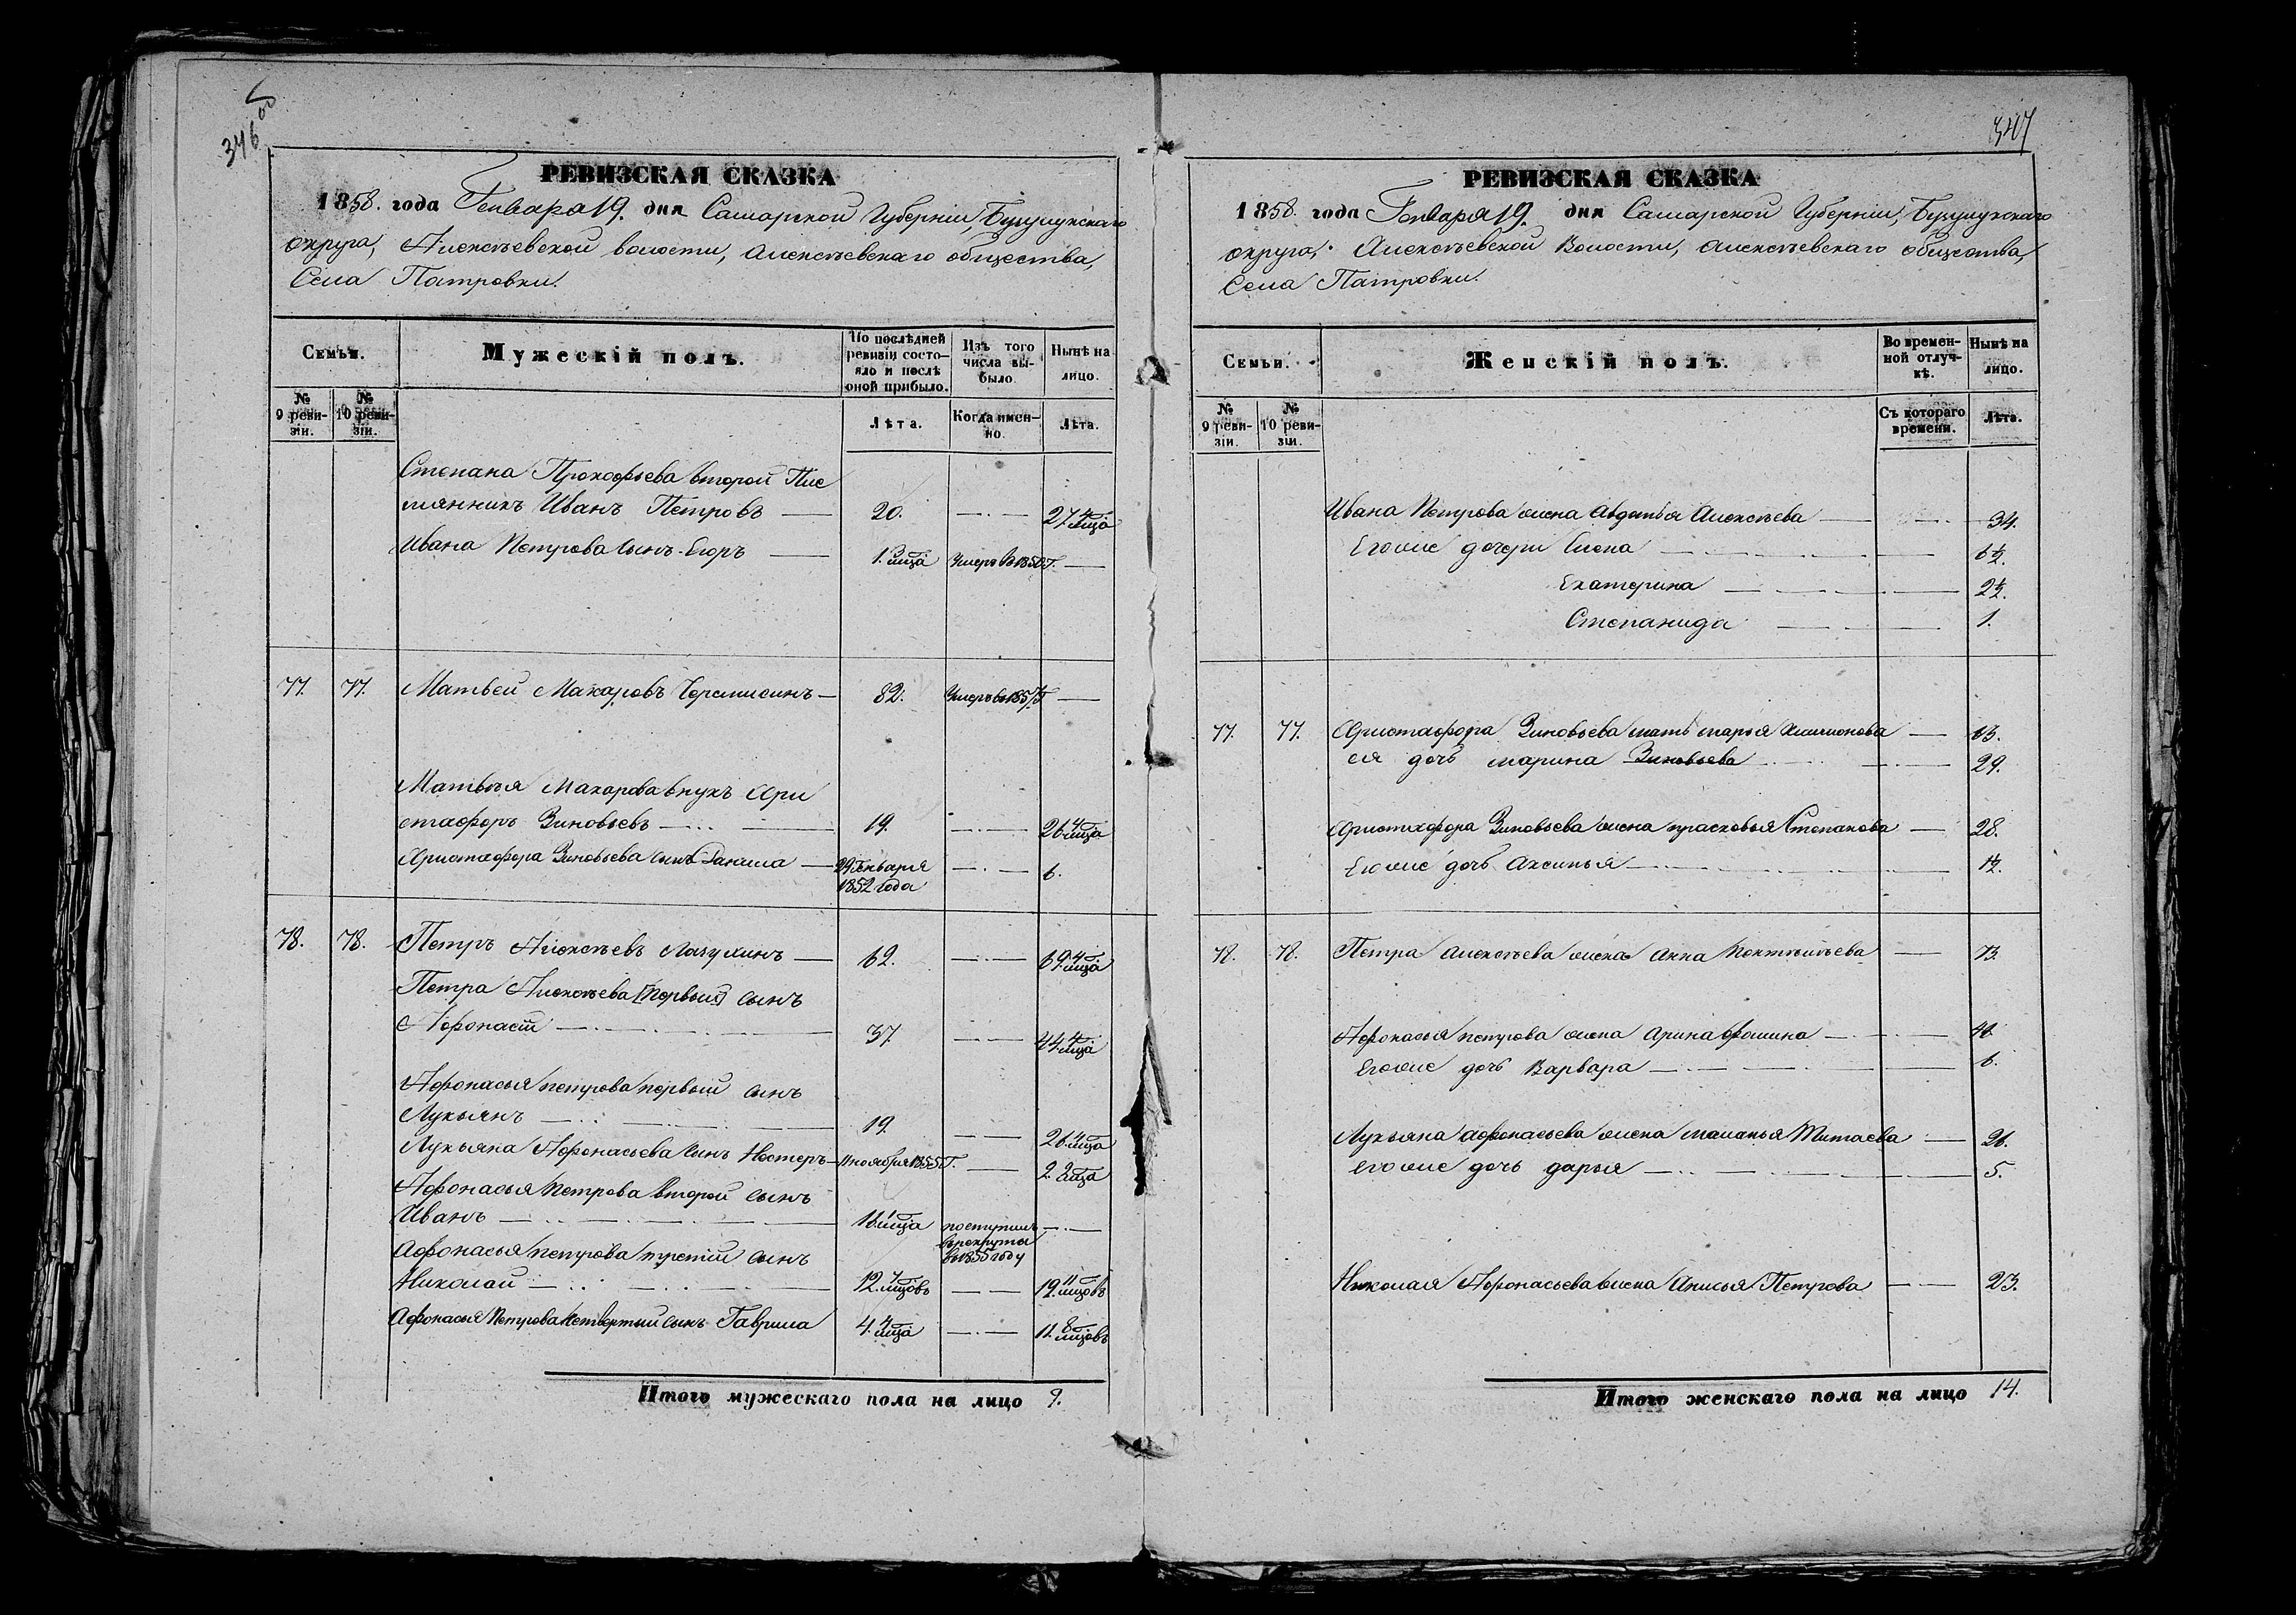 346 об
РЕВИЗСКАЯ СКАЗКА
1858. года Генваря 19. дня Самарской Губерніи, Бузулукскаго
округа, Алексѣевской волости, Алексѣевскаго общества,
Села Патровки.
Семьи.
Мужескій полъ.
По послѣдней ревизіи состояло и послѣ оной прибыло.
Изъ того числа выбыло.
Нынѣ на лицо.
№ 9 ревизіи.
№ 10 ревизіи.
Лѣта.
Когда именно.
Лѣта.
Степана Прокофьева второй Пле
мянникъ Иванъ Петровъ 20. 27 4 мца
Ивана Петрова Сынъ Егоръ 1. мца Умеръ въ 1850 г.
77. 77. Матвей Макаровъ Черемисинъ 82. Умеръ въ 1857 г.
Матвѣя Макарова внукъ Ари
стафоръ Зиновьевъ 19. 26 4 мца
Аристафора Зиновьева сынъ Данила 29 Генваря 1852 года 6.
78. 78. Петръ Алексѣевъ Лазуткинъ 62. 69. 4 мца
Петра Алексѣева [первый] сынъ
Афонасій 37. 44. 4 мца
Афонасья петрова первый сынъ
Лукьянъ 19. 26. 4 мца
Лукьяна Афонасьева сынъ Нестеръ 11 ноября 1855 г. 2. 2 мца
Афонасья Петрова второй сынъ
Иванъ 16. мца поступилъ
въ рекруты
въ 1855 году
Афонасья петрова третій сынъ
Николай 12. 7 мцовъ 19. 11 мцовъ
Афонасья Петрова Четвертый сынъ Гаврила 4. 4 мца 11. 8 мцовъ
Итого мужескаго пола на лицо 9.
347
РЕВИЗСКАЯ СКАЗКА
1858. года Генваря 19. дня Самарской Губерніи, Бузулукскаго
округа, Алексѣевской Волости, Алексѣевскаго общества,
Села Патровки.
Семьи.
Женскій полъ.
Во временной отлучкѣ.
Нынѣ на лицо.
№ 9 ревизіи.
№ 10 ревизіи.
Съ котораго времени.
Лѣта.
Ивана Петрова жена Авдотья Алексѣева 34.
Егоже дочери Елена 6 1/2.
Екатерина 2 1/2.
Степанида 1.
77. 77. Аристафора Зиновьева мать марья 63.
ея дочь марина Зиновьева 29.
Аристафора Зиновьева жена прасковья Степанова 28.
Егоже дочь Аксинья 1/2.
78. 78. Петра Алексѣева жена Анна 73.
Афонасья петрова жена Арина фомина 46.
Егоже дочь Варвара 6.
Лукьяна афонасьева жена маланья Титаева 26.
Егоже дочь дарья 5.
Николая Афонасьева жена Анисья Петрова 23.
Итого женскаго пола на лицо 14.